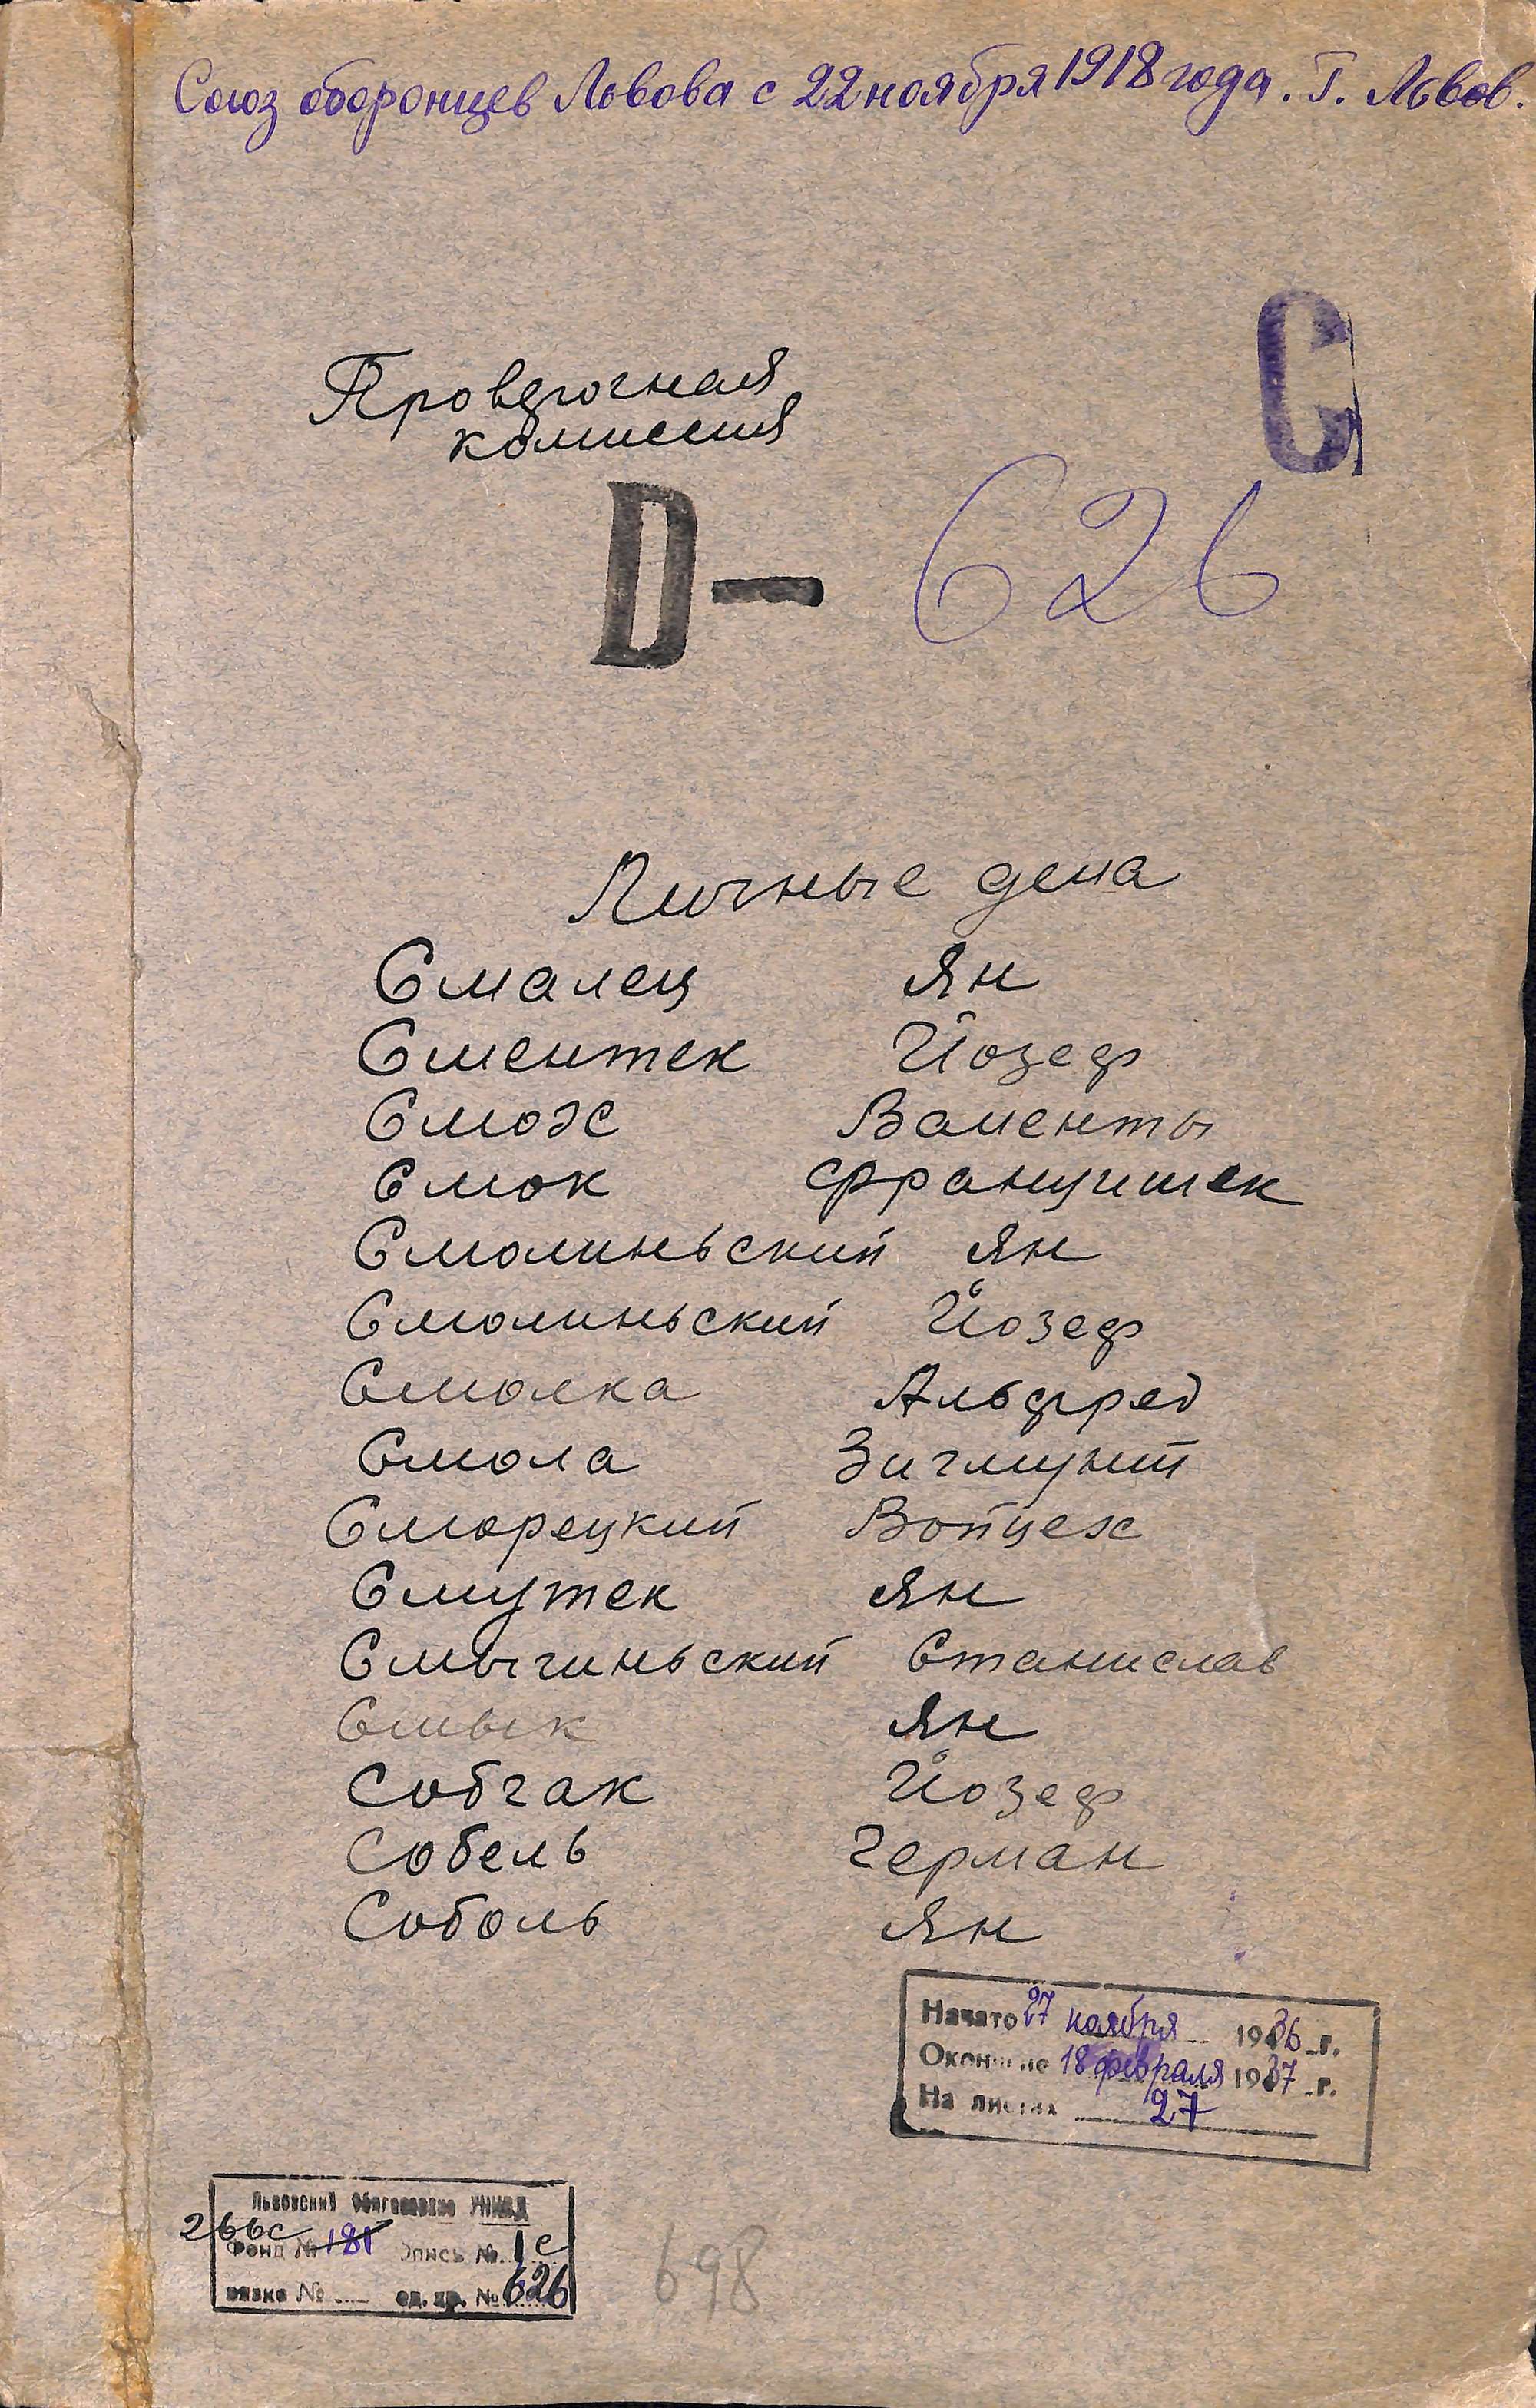 Союз оборонцев Львова с 22 ноября 1918 года. Г. Львов.
С
Проверочная
комиссия
D — 626
Личные дела
Смалец Ян
Сментек Йозеф
Смож Валенты
Смок Францишек
Смолиньский Ян
Смолиньский Йозеф
Смолка Альфред
Смола Зигмунт
Сморецкий Войцех
Смутек Ян
Смычиньский Станислав
Смык Ян
Собчак Йозеф
Собель Герман
Соболь Ян
Начато 27 ноября 1936 г.
Окончено 18 февраля 1937 г.
На листах 27
Львовский Облгосархив УНКВД
266с
Фонд № 181 Опись № 1с
вязка № ед. хр. № 626
698